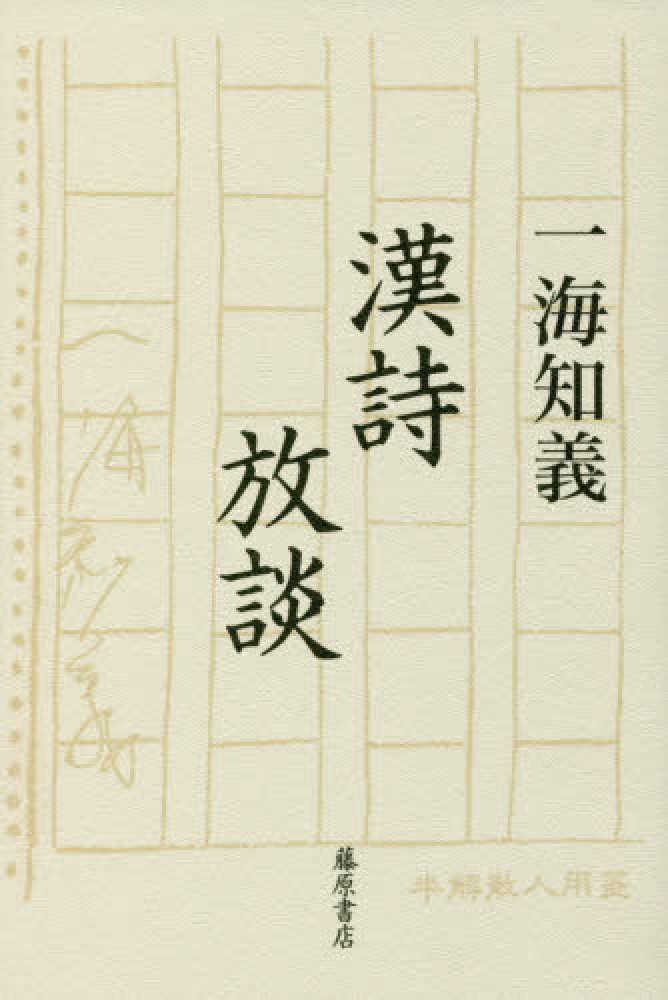 一海知義
漢詩
放談
一海知義
藤原書店
半解散人用箋